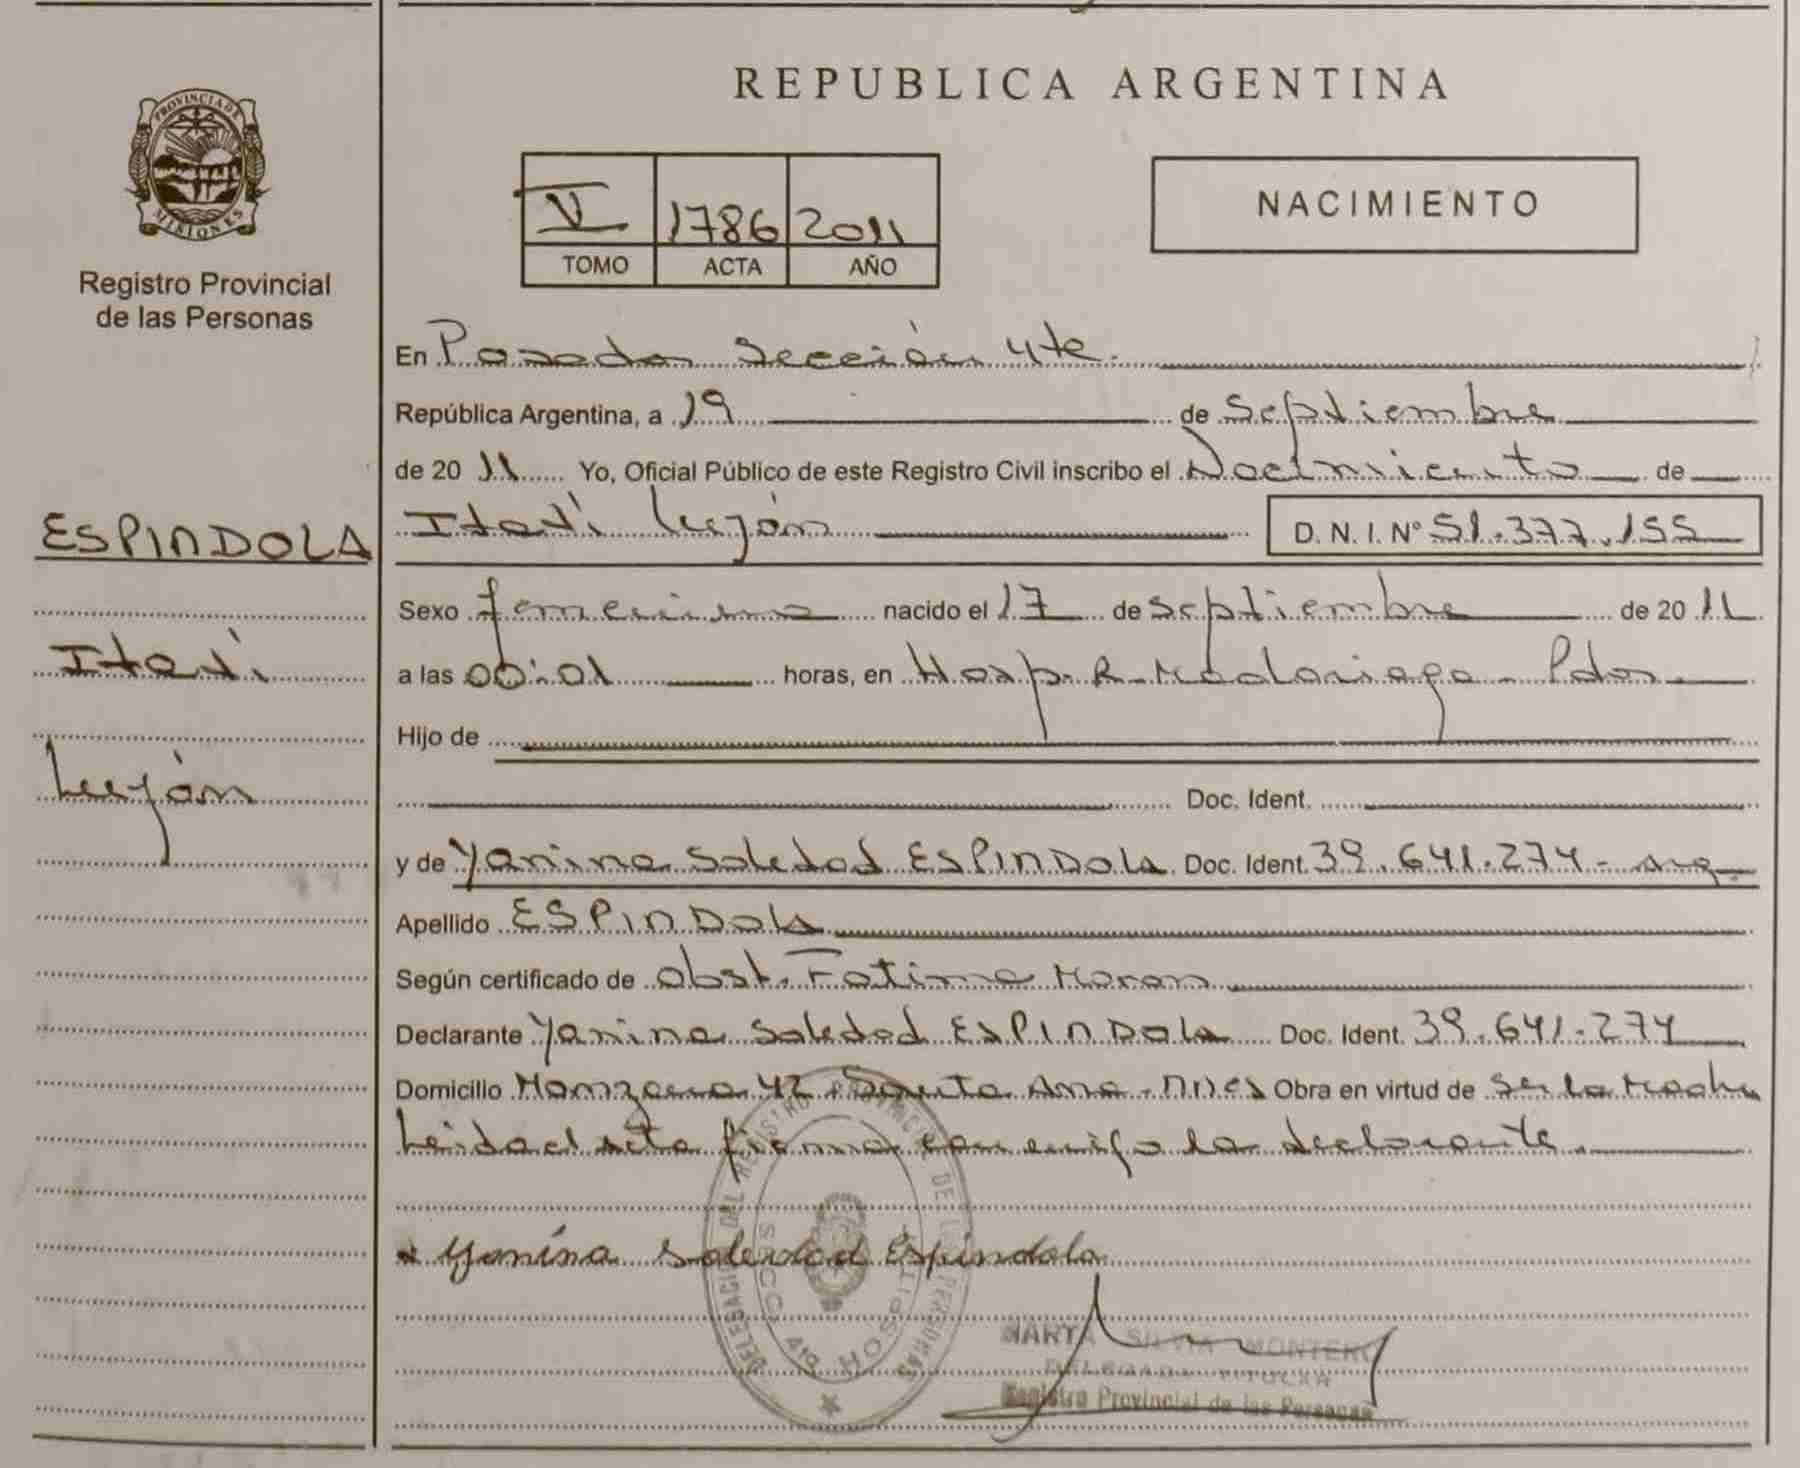 REPUBLICA ARGENTINA
PROVINCIA DE
MISIONES
Registro Provincial
de las Personas
V 1786 2011
TOMO ACTA AÑO
NACIMIENTO
En Posadas Sección 4ta.
República Argentina, a 19 de Septiembre
de 20 11 Yo, Oficial Público de este Registro Civil inscribo el Nacimiento de
ESPINDOLA
Itatí
Luján
Itatí Luján D. N. I. Nº 51.377.155
Sexo femenino nacido el 17 de Septiembre de 20 11
a las 00:01 horas, en Hosp. R. Madariaga - Pdas
Hijo de
Doc. Ident.
y de Yanina Soledad ESPINDOLA Doc. Ident. 39.641.274 - Arg
Apellido ESPINDOLA
Según certificado de Obst. Fatima Moran
Declarante Yanina Soledad ESPINDOLA Doc. Ident. 39.641.274
Domicilio Manzana 42 Santa Ana - Mnes Obra en virtud de Ser la Madre
Leida el acta firma conmigo la declarante.
Yanina Soledad Espindola
DELEGACION DEL REGISTRO PROVINCIAL DE LAS PERSONAS
SECC. 4ta HOSPITAL
MARTA SILVIA MONTERO
DELEGADA TITULAR
Registro Provincial de las Personas